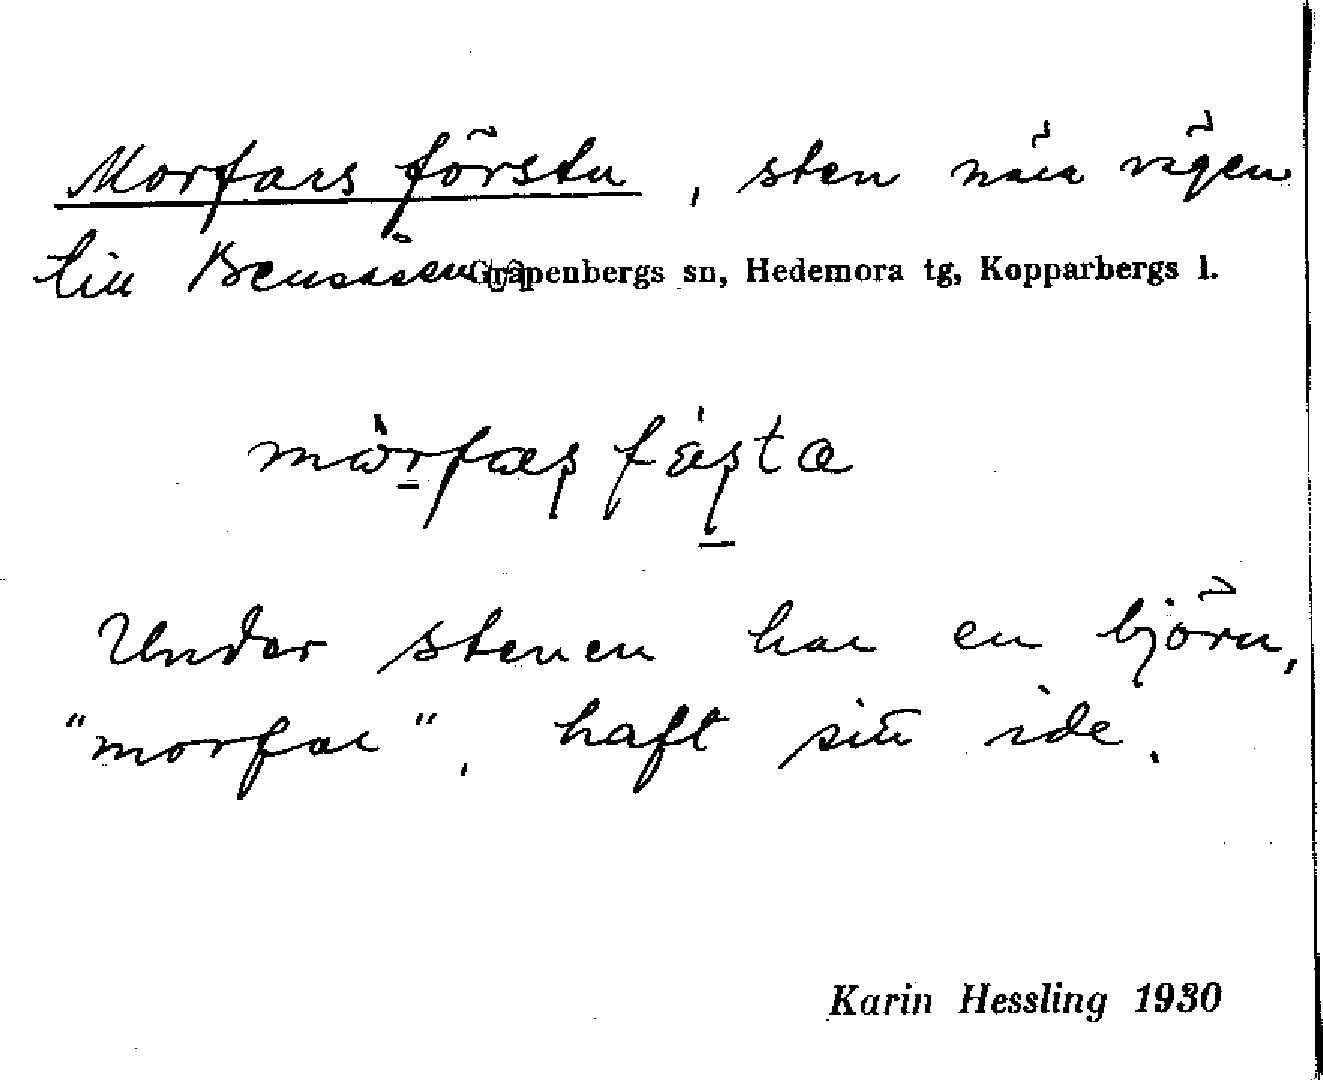 Morfars första, sten nära vägen
till Garpenbergs sn, Hedemora tg, Kopparbergs l.
Under stenen har en björn,
"morfar", haft sitt ide.
Karin Hessling 1930